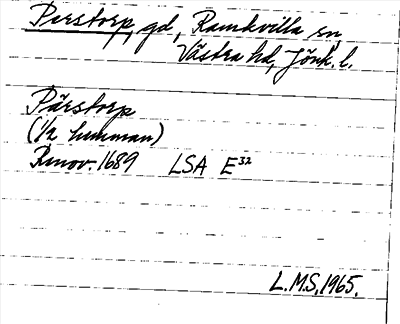 Perstorp, gd, Ramkvilla sn,
Västra hd, Jönk. l.
Pärstorp
(1/2 hemman)
Renov. 1689 LSA E32
L.M.S. 1965.